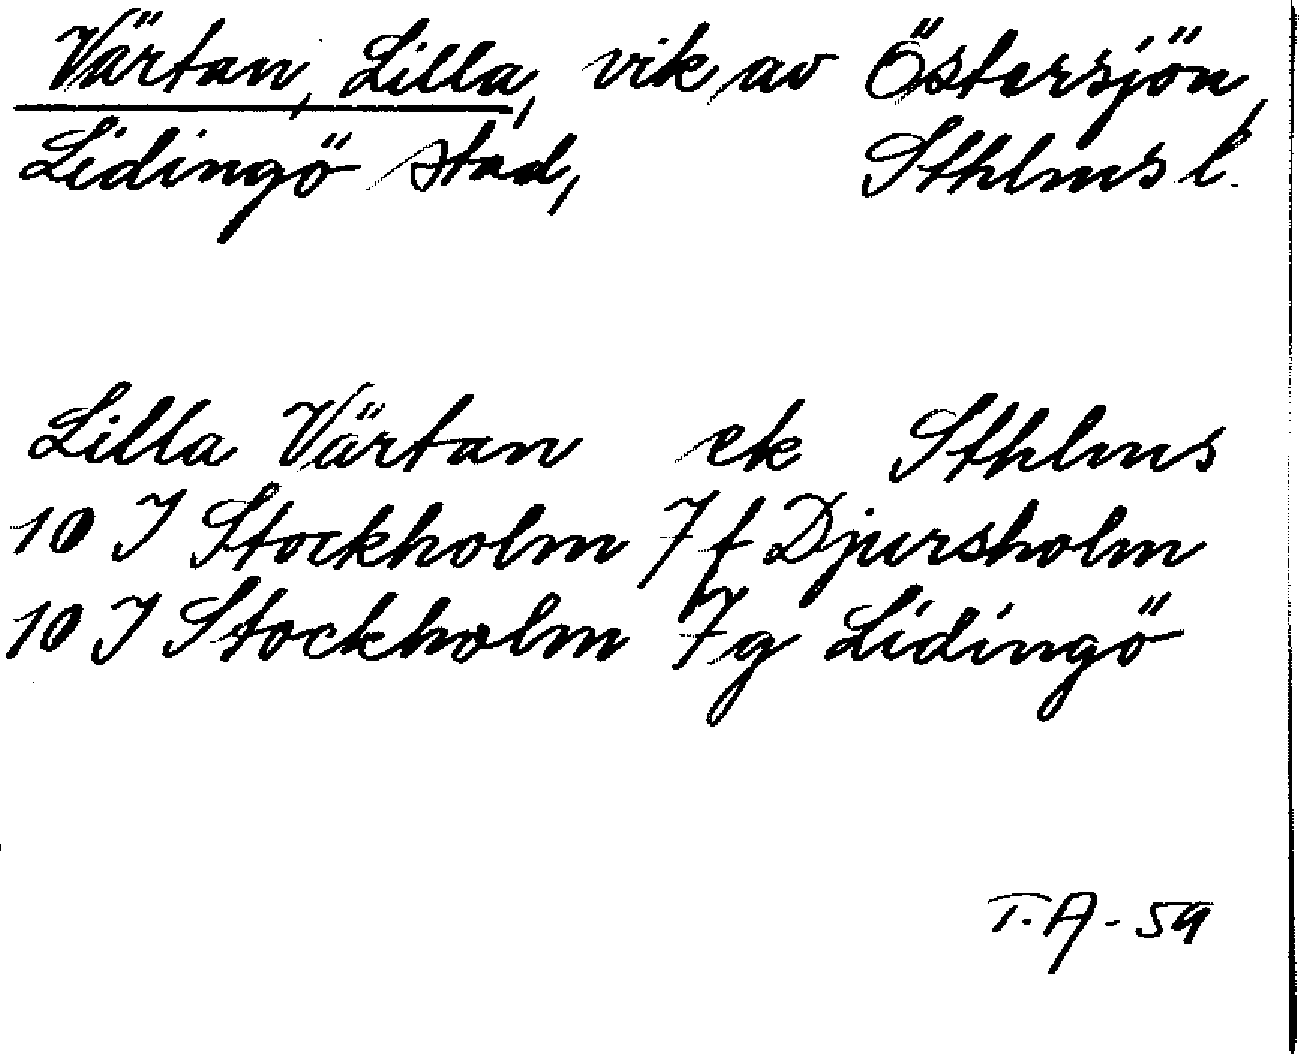 Värtan, Lilla, vik av Östersjön,
Lidingö stad, Sthlms l.
Lilla Värtan ek Sthlms
10 I Stockholm 7 f Djursholm
10 I Stockholm 7 g Lidingö
T.A - 59